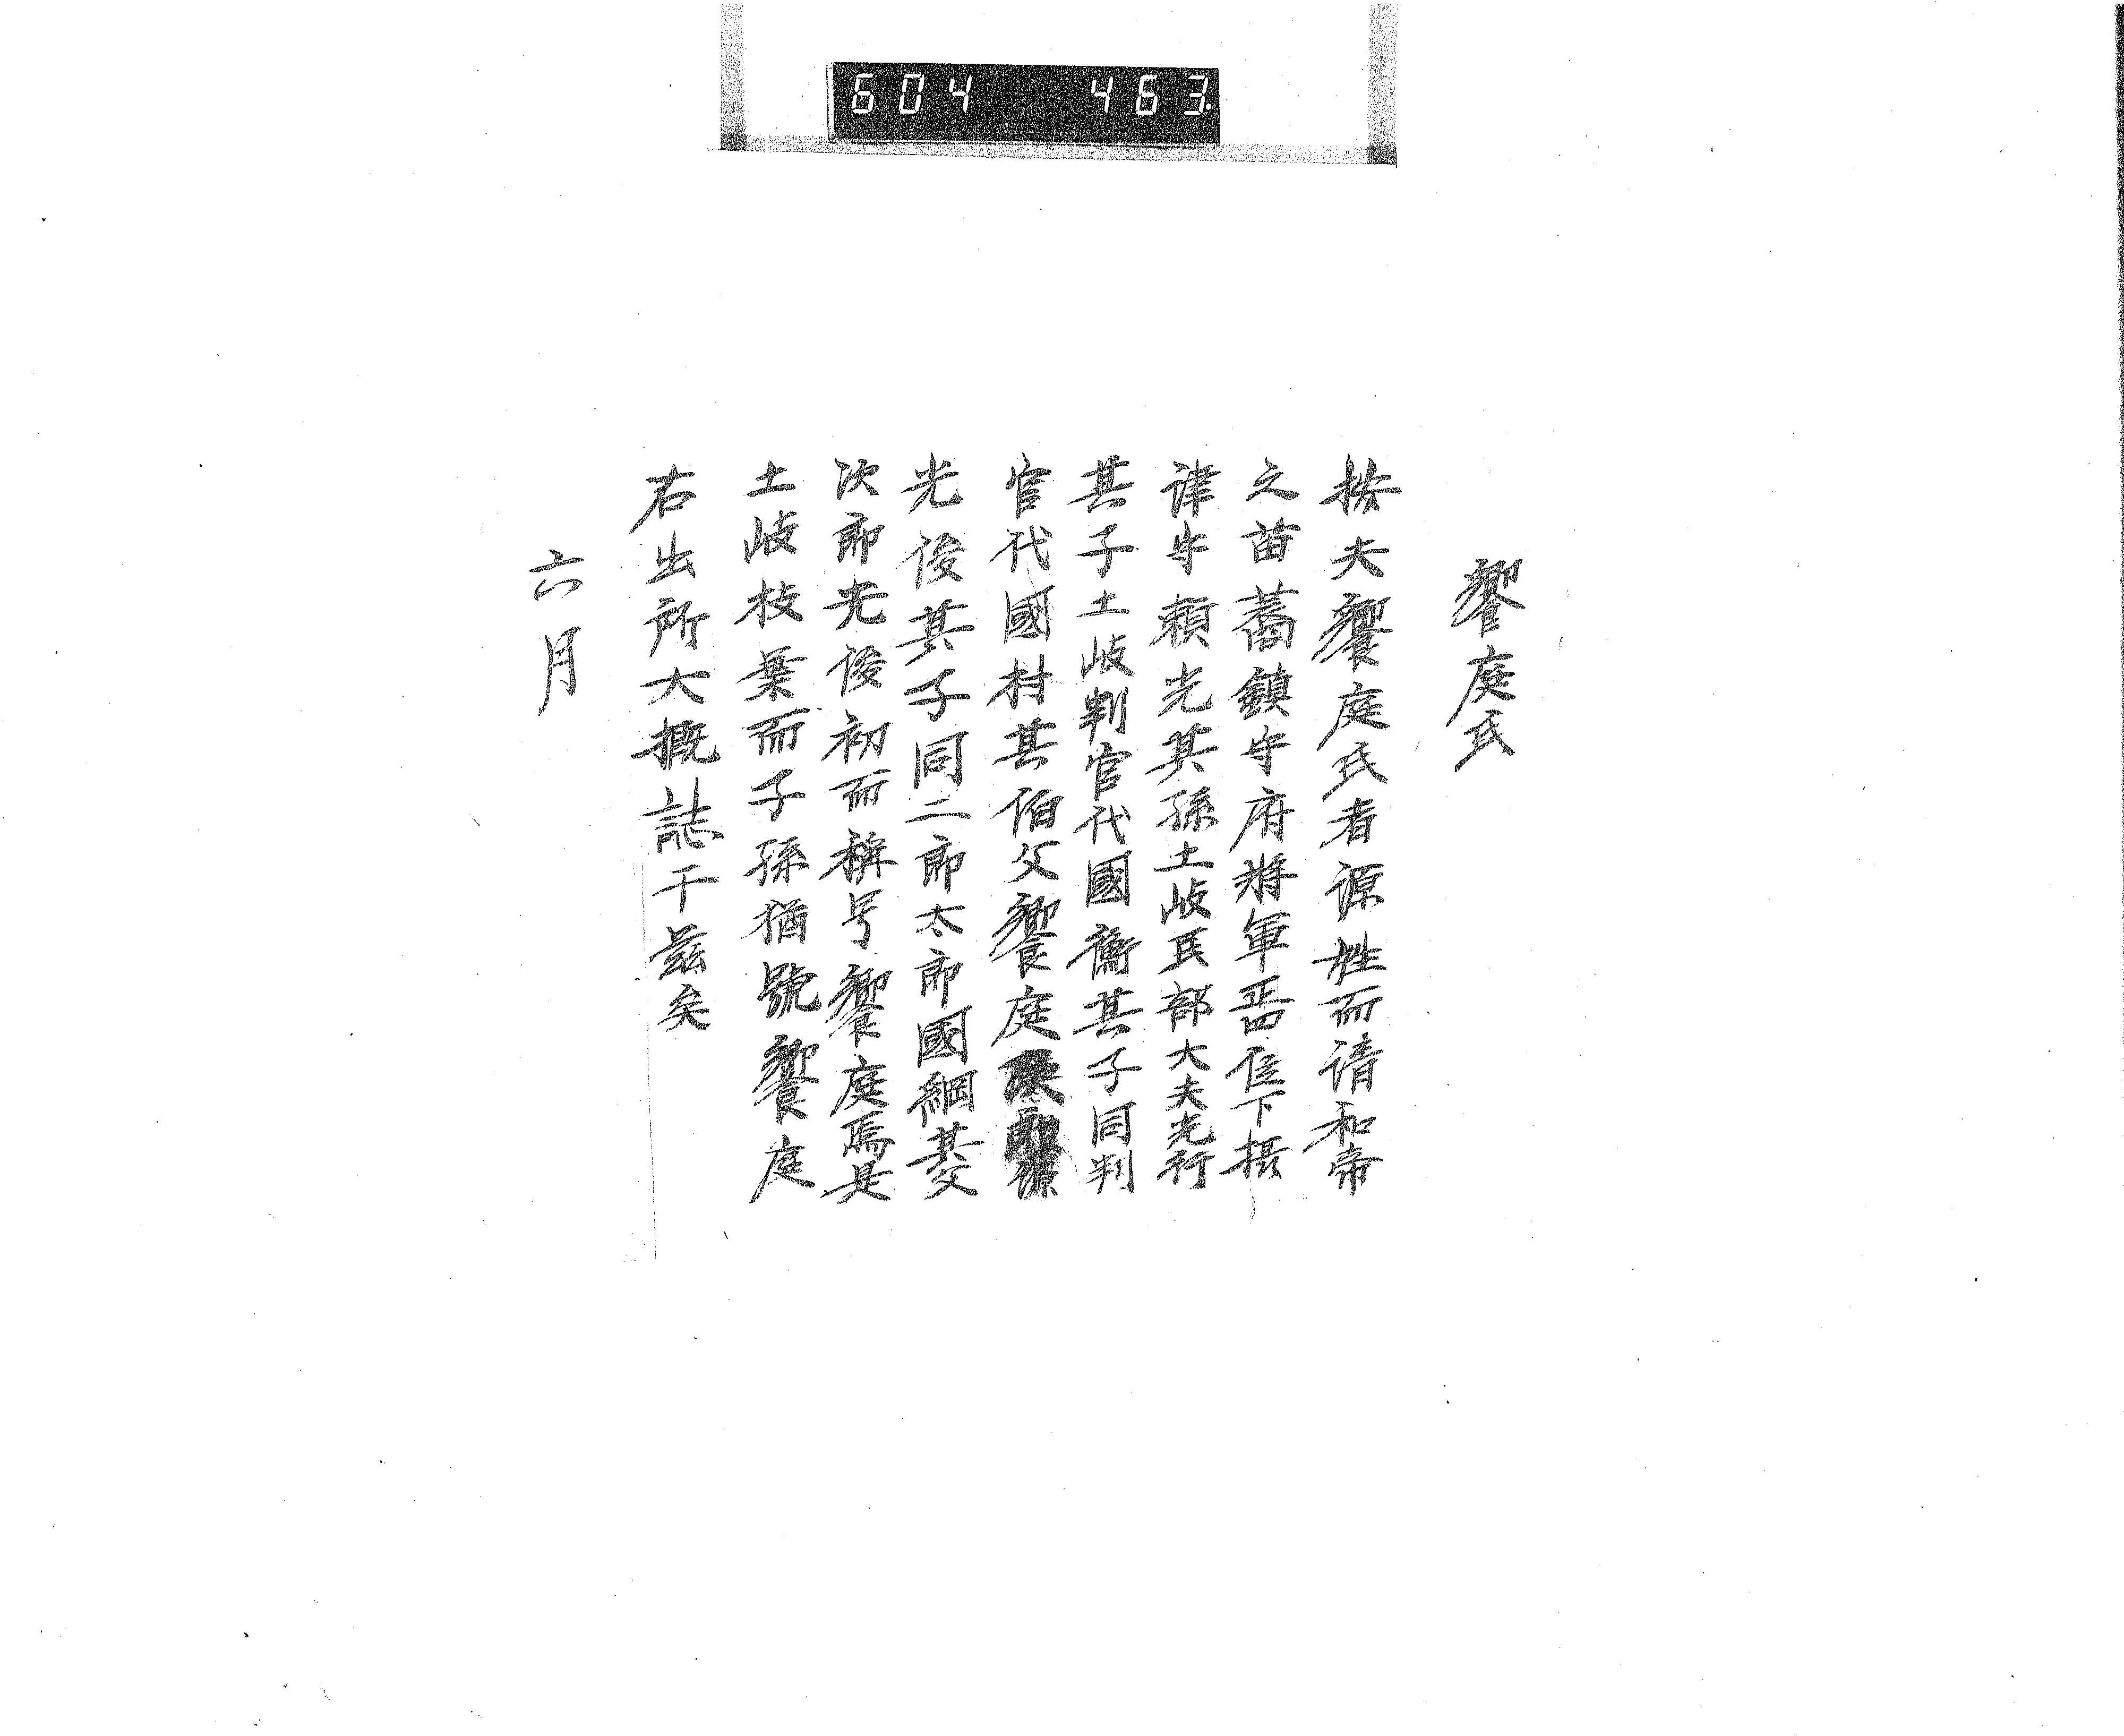 604 463.
饗庭氏
按夫饗庭氏者源姓而清和帝
之苗裔鎮守府将軍正四位下摂
津守頼光其孫土岐民部大夫光行
其子土岐判官代國衡其子同判
官代國村其伯父饗庭源
光俊其子同二郎太郎國綱其父
次郎光俊初而稱号饗庭焉是
土岐枝葉而子孫猶號饗庭
右出所大概誌于茲矣
六月